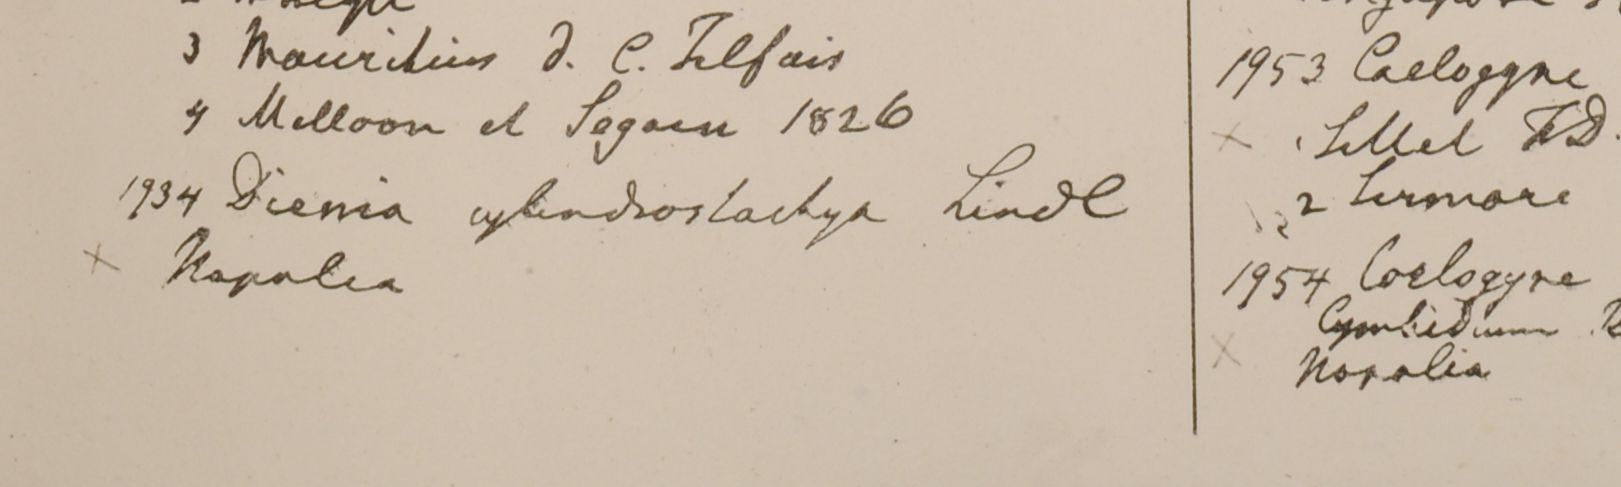 3 Mauritius d. C. Telfair
4 Melloon et Segaen 1826
1934 Dienia cylindrostachya Lindl
x Napalia
1953 Caelogyne
x 1. Sillet FD.
2 
1954 Coelogyne
Cymbidium
x Napalia